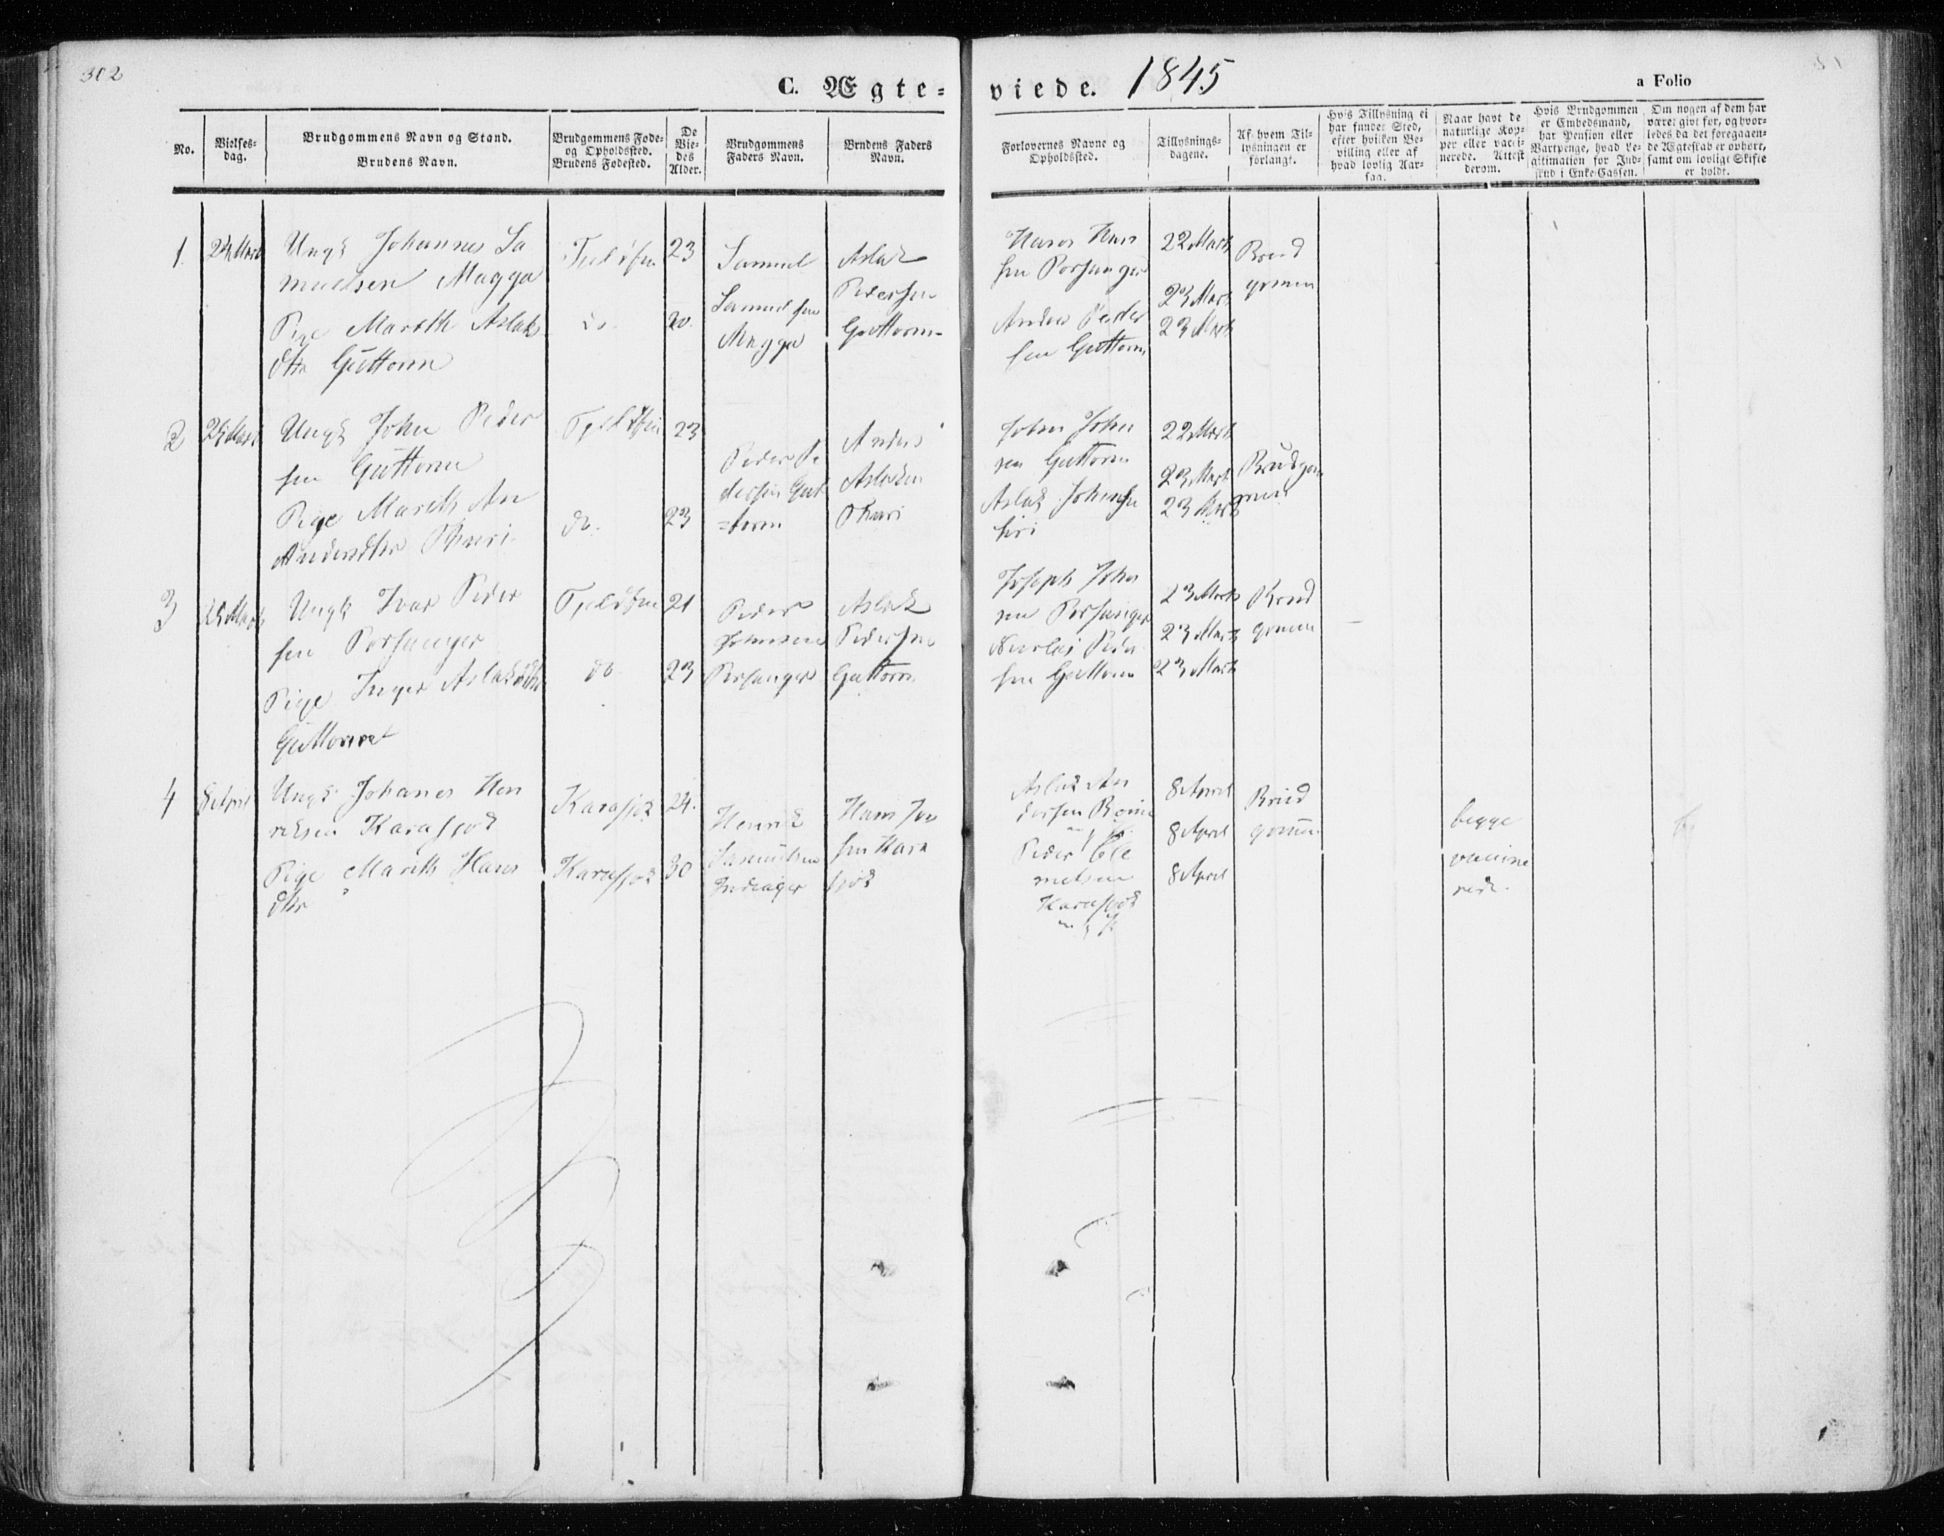 302
C. Ægteviede. 1845
a Folio
No.
Vielsesdag.
Brudgommens Navn og Stand.
Brudens Navn.
Brudgommens Føde-
og Opholdssted.
Brudens Fødested.
De
Vie-
des
Alder.
Brudgommens
Faders Navn.
Brudens Faders
Navn.
Forlovernes Navne og
Opholdssted.
Tillysnings-
dagene.
Af hvem Til-
lysningen er
forlangt.
Hvis Tillysning ei
har fundet Sted,
efter hvilken Be-
villing eller af
hvad lovlig Aar-
sag.
Naar havt de
naturlige Kop-
per eller vacci-
nerede. Attest
derom.
Hvis Brudgommen
er Embedsmand,
har Pension eller
Vartpenge, hvad Le-
gitimation for Ind-
skud i Enke-Cassen.
Om nogen af dem har
været givt før, og hvor-
ledes da det foregaaen-
de Ægteskab er ophørt,
samt om lovligt Skifte
er holdt.
1.
24 Marts
Ungk Johannes Sa
muelsen Magga
Pige Mareth Aslaks
dtr Guttorm
do.
23
20.
Samuel
Samuelsen
Magga
Aslak
Pedersen
Guttorm
Hans Han
sen Porsanger
Anders Peder
sen Guttorm
22 Marts
23 Marts
23 Marts
Brud
gomen
2
25 Marts
Ungk John Peder
sen Guttorm
Pige Mareth An
Andersdtr
do.
23
23
Peder Pe
dersen Gut
=torm
Anders
Aslaksen
John John
sen Guttorm
Aslak Johnsen
22 Marts
23 Marts
23 Marts
Brudgom
men
3
25 Marts
Ungk Ivar Peder
sen Porsanger
Pige Inger Aslaksdtr
Guttorm
do.
21
23
Peder
Johnsen
Porsanger
Aslak
Pedersen
Guttorm
Joseph John
sen Porsanger
Nicolai Peder
sen Guttorm
23 Marts
23 Marts
23 Marts
Brud
gomen
4
8 April
Ungk Johanes Hen
riksen Karasjok
Pige Mareth Hans
dtr
Karasjok
Karasjok
24.
30
Henrik
Samuelsen
Hans
sen Kara
sjok
Aslak An
dersen
Peder
Karasjok
8 April
8 April
8 April
Brud
gomen
begge
vaccine
rede.